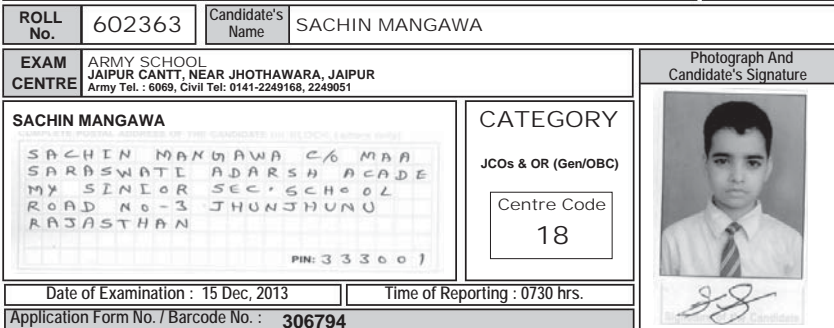 ROLL No. 602363 Candidate's Name SACHIN MANGAWA
EXAM CENTRE
ARMY SCHOOL
JAIPUR CANTT, NEAR JHOTHAWARA, JAIPUR
Army Tel. : 6069, Civil Tel: 0141-2249168, 2249051
Photograph And
Candidate's Signature
SACHIN MANGAWA
COMPLETE POSTAL ADDRESS OF THE CANDIDATE (in BLOCK Letters only)
SACHIN MANGAWA C/o MAA
SARASWATI ADARSH ACADE
MY SENIOR SEC. SCHOOL
ROAD No-3 JHUNJHUNU
RAJASTHAN
PIN: 333001
CATEGORY
JCOs & OR (Gen/OBC)
Centre Code
18
Date of Examination : 15 Dec, 2013 Time of Reporting : 0730 hrs.
Application Form No. / Barcode No. : 306794